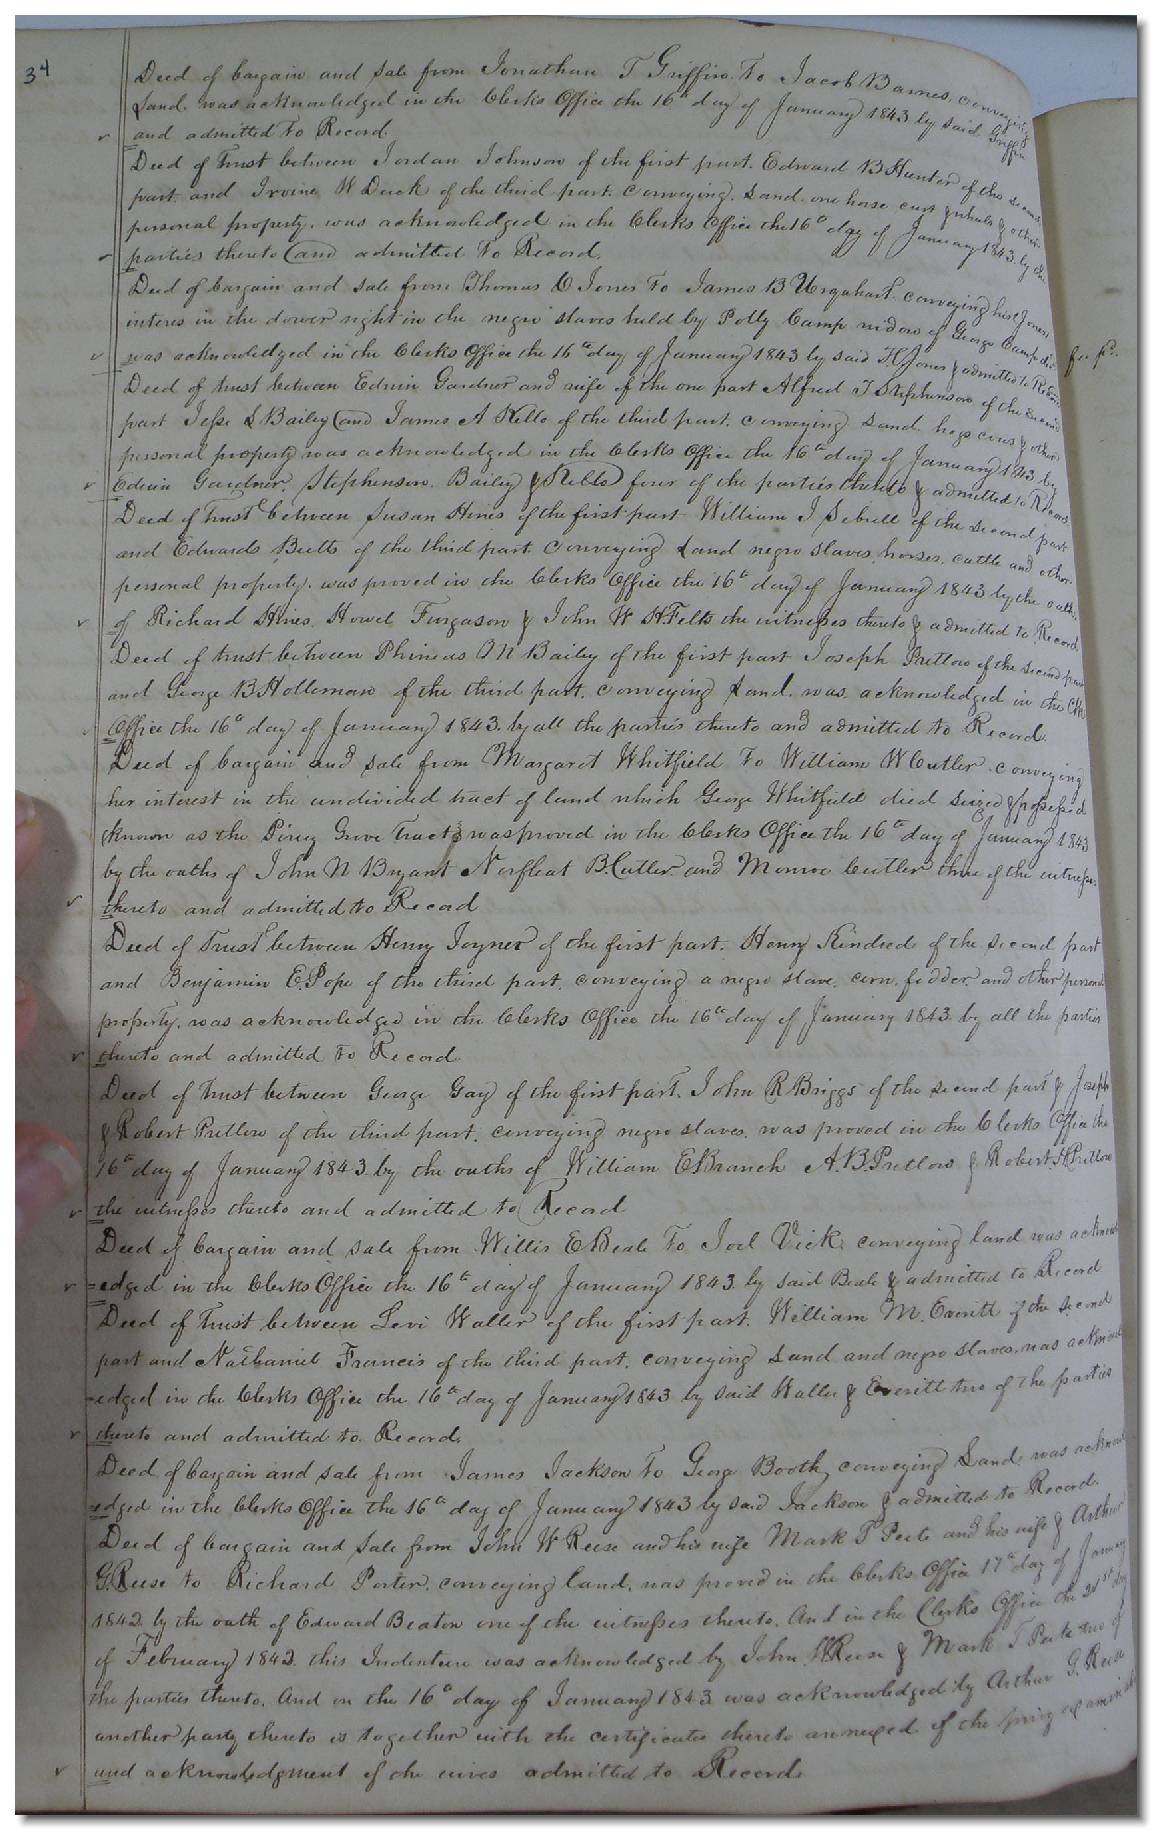 34
Deed of bargain and sale from Jonathan T Griffin To Jacob Barnes, conveying
Land, was acknowledged in the Clerks Office the 16th day of January 1843 by said Griffin
and admitted to Record
Deed of Trust between Jordan Johnson of the first part. Edward B Hunter of the second
part. and Irvine W Duck of the third part. conveying. Land. one horse cart & wheels & other
personal property. was acknowledged in the Clerks Office the 16th day of January 1843 by the
parties thereto and admitted to Record.
Deed of bargain and sale from Thomas D Jones To James B Urquhart. conveying his Jones
interes in the dower right in the negro slaves held by Polly Camp widow of George Camp
was acknowledged in the Clerks Office the 16th day of January 1843 by said Jones & admitted to Record
Deed of trust between Edwin Gardner and wife of the one part Alfred J Stephenson of the second
part Jesse L Bailey and James A Kello of the third part. conveying Land hogs cows & other
personal property was acknowledged in the Clerks Office the 16th day of January 1843 by
Edwin Gardner. Stephenson. Bailey & Kello four of the parties thereto & admitted to Record.
Deed of Trust between Susan Hines of the first part William J Sebrell of the second part
and Edwards Butts of the third part conveying Land negro slaves, horses, cattle and other
personal property. was proved in the Clerks Office the 16th day of January 1843 by the oaths
of Richard Hines. Howel Furgason & John W H Felts the witnesses thereto & admitted to Record.
Deed of trust between Phineas M Bailey of the first part Joseph Pretlow of the second part
and George B Holleman of the third part. conveying Land. was acknowledged in the Clk
Office the 16th day of January 1843. by all the parties thereto and admitted to Record.
Deed of bargain and sale from Margaret Whitfield To William W Cutler. conveying
her interest in the undivided tract of land which George Whitfield died seized & possessed
known as the Piney Grove Tract was proved in the Clerks Office the 16th day of January 1843
by the oaths of John N Bryant Norfleat B. Cutler and Monroe Cutler three of the witnesses
thereto and admitted to Record
Deed of Trust between Henry Joyner of the first part. Henry Kindred of the second part
and Benjamin E. Pope of the third part. conveying a negro slave. corn, fodder, and other personal
property. was acknowledged in the Clerks Office the 16th day of January 1843. by all the parties
thereto and admitted to Record
Deed of trust between George Gay of the first part. John R Briggs of the second part & Joseph
& Robert Pretlow of the third part. conveying negro slaves. was proved in the Clerks Office the
16th day of January 1843. by the oaths of William E Branch A. B. Pretlow & Robert H Pretlow
the witnesses thereto and admitted to Record
Deed of bargain and sale from Willis E Beale To Joel Vick conveying land was acknowl
=edged in the Clerks Office the 16th day of January 1843. by said Beale & admitted to Record
Deed of Trust between Levi Waller of the first part. William M. Everitt of the second
part and Nathaniel Francis of the third part. conveying Land and negro slaves. was acknowl
=edged in the Clerks Office the 16th day of January 1843 by said Waller & Everitt two of the parties
thereto and admitted to Record.
Deed of bargain and sale from James Jackson To George Booth, conveying Land, was acknowl
=edged in the Clerks Office the 16th day of January 1843 by said Jackson & admitted to Record.
Deed of bargain and sale from John W Reese and his wife Mark T Peete and his wife & Arthur
G. Reese to Richard Porter. conveying land. was proved in the Clerks Office 17th day of January
1842. by the oath of Edward Beaton one of the witnesses thereto. And in the Clerks Office the 21st day
of February 1842. this Indenture was acknowledged by John W Reese & Mark T Peete two of
the parties thereto. And on the 16th day of January 1843 was acknowledged by Arthur G. Reese
another party thereto is together with the certificates thereto annexed of the privy examination
and acknowledgment of the wives admitted to Record.